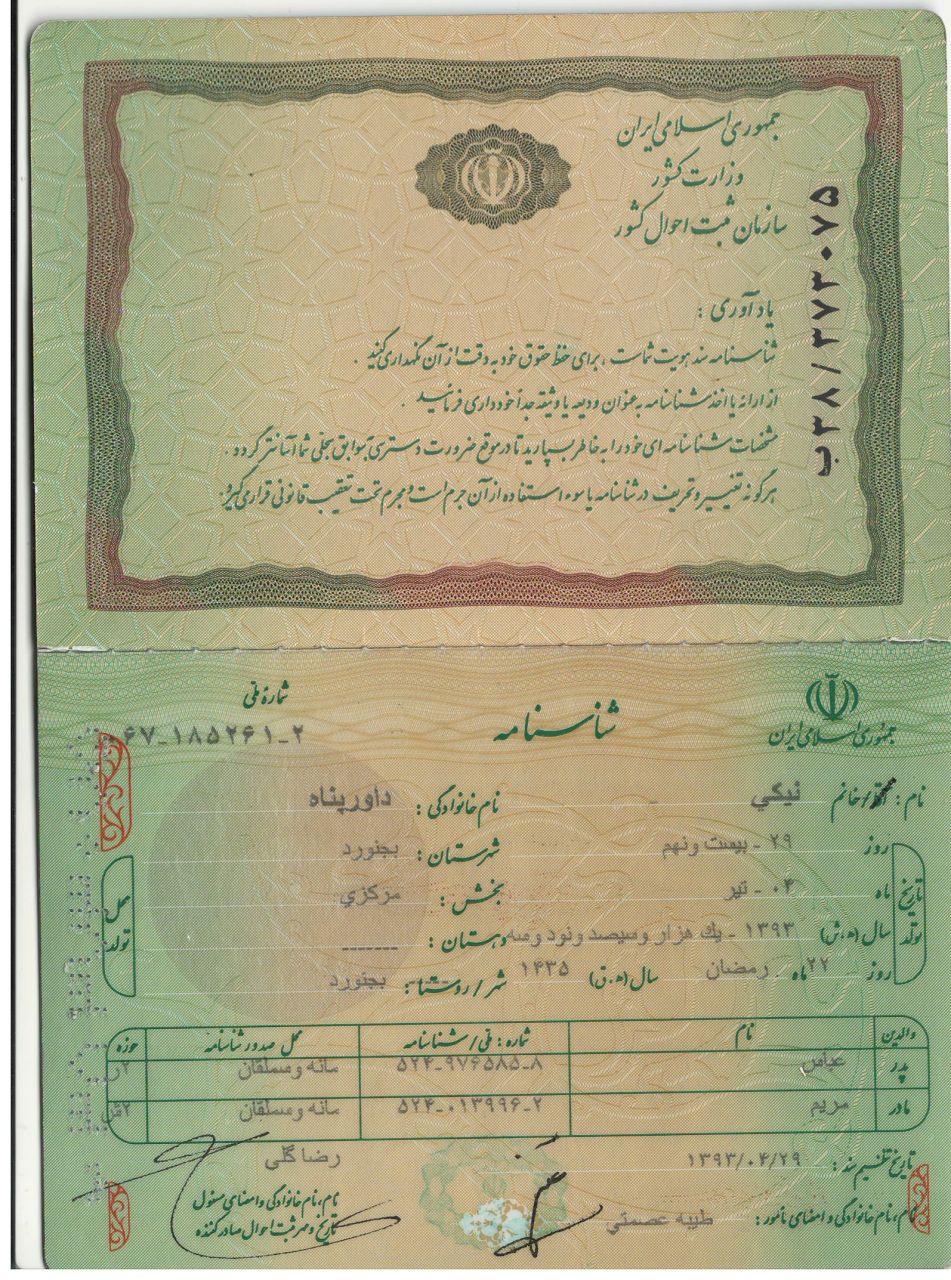 جمهوری اسلامی ایران
وزارت کشور
سازمان ثبت احوال کشور
ب۳۸/۳۷۳۰۷۵
یادآوری :
شناسنامه سند هویت شماست ، برای حفظ حقوق خود به دقت از آن نگهداری کنید .
از ارائه یا اخذ شناسنامه به عنوان ودیعه یا وثیقه جداً خودداری فرمائید .
مشخصات شناسنامه ای خود را به خاطر بسپارید تا در موقع ضرورت دسترسی به سوابق سجلی شما آسانتر گردد .
هرگونه تغییر و تحریف در شناسنامه یا سوء استفاده از آن جرم است و مجرم تحت تعقیب قانونی قرار می گیرد .
جمهوری اسلامی ایران
شناسنامه
شماره ملی
۶۷_۱۸۵۲۶۱_۲
نام : آقا/خانم نیکي - نام خانوادگی : داورپناه
تاریخ تولد
روز ۲۹ - بیست ونهم
ماه ۰۴ - تیر
سال (ه.ش) ۱۳۹۳ - یك هزار وسیصد ونود وسه
روز ۲۲ ماه رمضان سال (ه.ق) ۱۴۳۵
محل تولد
شهرستان : بجنورد
بخش : مرکزي
دهستان : -------
شهر / روستا : بجنورد
والدین نام شماره : ملی / شناسنامه محل صدور شناسنامه حوزه
پدر عباس ۵۲۴_۹۷۶۵۸۵_۸ مانه وسملقان ۲ر
مادر مریم ۵۲۴_۰۱۳۹۹۶_۲ مانه وسملقان ۲ش
تاریخ تنظیم سند : ۱۳۹۳/۰۴/۲۹
نام ، نام خانوادگی و امضای مأمور : طیبه عصمتي
رضا گلی
نام ، نام خانوادگی و امضای مسئول
تاریخ و مهر ثبت احوال صادرکننده